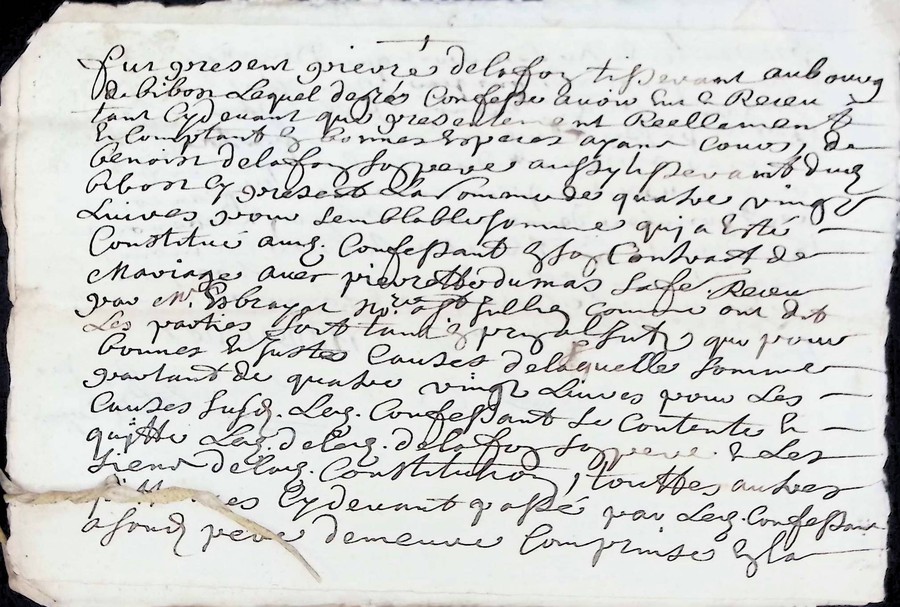 fut present pierre delafoy tisserant au bourg
de bibost Lequel de grés Confesse avoir Eut et Receu
tant Cydevant que presentement Reellement &
En Comptant En bonnes Especes ayant Cours, de
benoist delafoy son pere aussy tisserant dud
bibost Cy present La Somme de quatre vingt
Livres pour semblable somme quy a Esté
Constitué aud. Confessant En son Contract de
Mariage avec pierrette dumas sa fe. Receu
par Me. Esbrayat Nre. a St Jullien Comme ont dit
Les parties soit tant pour que pour
bonnes Et Justes Causes de laquelle somme
partant de quatre vingt Livres pour Les
Causes susd. Led. Confessant se Contente Et
quitte Led. delafoy son pere Et Les
Siens de lad. Constitution, touttes autres
quittances Cydevant passé par Led. Confessant
a sond pere demeure Comprise En la